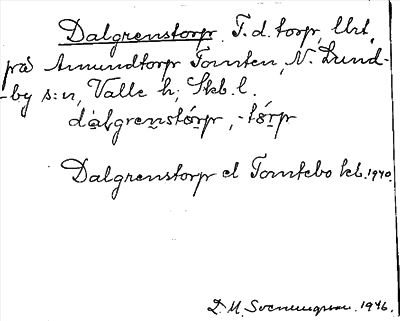 Dalgrenstorp. F.d. torp, lht,
på Amundtorp Tomten, N. Lund-
-by s:n, Valle h, Skb. l.
dalgrenstórp, -tórp
Dalgrenstorp el Tomtebo kb. 1940.
D. H. Svenungsson. 1946.